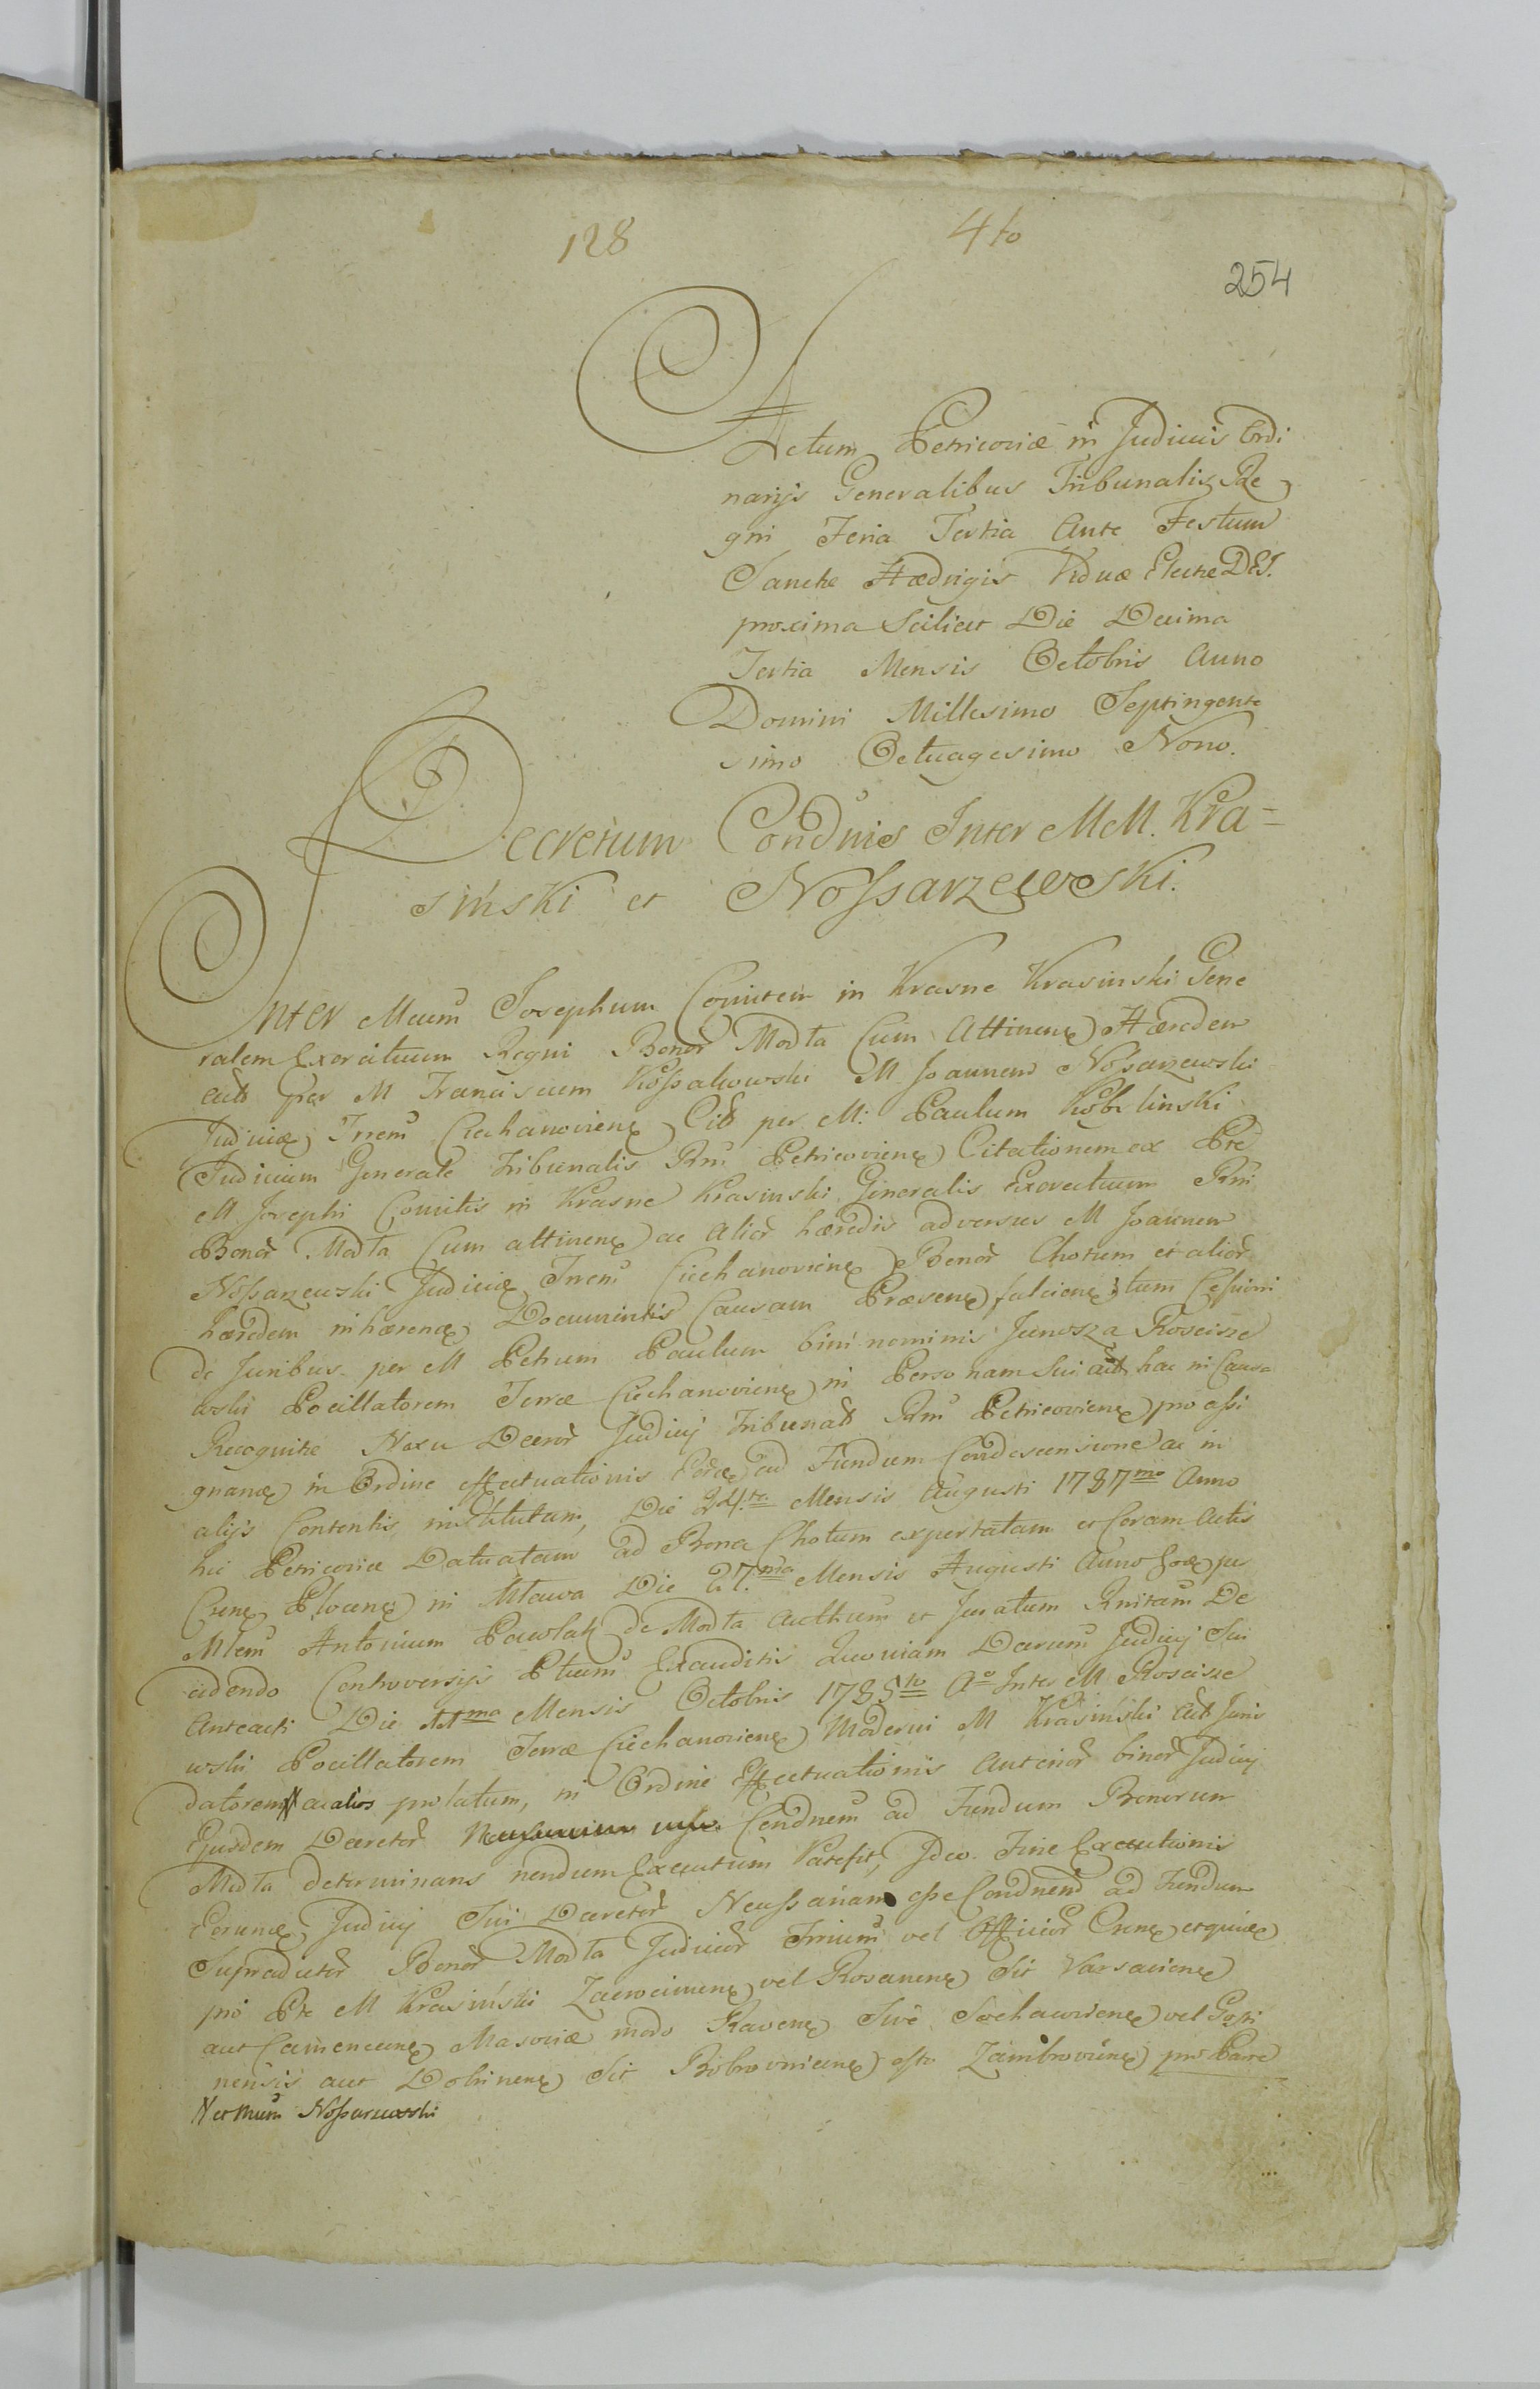 128 4to
254
Actum Petricoviæ in Judiciis Ordi
narijs Generalibus Tribunalis Re
gni Feria Tertia Ante Festum
Sanctæ Hædvigis Viduæ Electæ DEI.
proxima Scilicet Die Decima
Tertia Mensis Octobris Anno
Domini Millesimo Septingente
simo Octuagesimo Nono.
Decretum Condnis Inter MM. Kra=
sinski et Nossarzewski.
Inter Mcum Josephum Comitem in Krasne Krasinski Gene
ralem Exercituum Regni Bonor Modła Cum Attinen Hæredem
Act per M Franciscum Kossakowski M Joannem Nossarzewski
Judicem Trrem Ciechanovien Cit per M. Paulum Kobyliński
Judicium Generale Tribunalis Rni Petricovien Citationem ex Pte
M Josephi Comitis in Krasne Krasinski Generalis Exercituum Rni
Bonor Modła Cum attinen ac Alior hæredis adversus M Joannem
Nossarzewski Judicem Trrem Ciechanovien Bonor Chotum et alior
hæredem inhæren Documentis Causam Præsen fulcien tum Cessioni
de Juribus per M Petrum Paulum bini nominis Junosza Roscisze
wski Pocillatorem Terræ Ciechanovien in Personam Sui Act hac in Causa
Recognitæ Nexu Decret Judicij Tribunal Rni Petricovien pro assi
gnan in Ordine effectuationis ad Fundum Condescensione ac in
alijs Contentis institutam, Die 24.ta Mensis Augusti 1787mo Anno
hic Petricoviæ Datuatam ad Bona Chotum exportatam et Coram Actis
Cren Plocen in Mława Die 27.ma Mensis Augusti Anno per
Mtem Antonium Pawlak de Modła Authum et Juratum Rnitam De
cidendo Controversijs Ptium Exauditis Quoniam Decretum Judicij Sui
Anteacti Die Mensis Octobris 1785to Ao Inter M Roscisze
wski Pocillatorem Terræ Ciechanovien Moderni M Krasiński Act Juris
datorem // ac alios prolatum, in Ordine Effectuationis Anterior binor Judicij
Ejusdem Decretor Condnem ad Fundum Bonorum
Modła determinans nondum Executum Patefit, Ideo. Fine Executionis
Judicij Sui Decretor Necessariam esse Condnem ad Fundum
Supradictor Bonor Modła Judicior Trrium vel Officior Cren
pro Pte M Krasiński vel Rosanen Sit Varsavien
aut Masoviæ modo Raven Sive Sochavien vel Gosti
nensis aut Dobrinen Sit Bobrovnicen esto Zambrovien pro Parte
// et Mum Nossarzewski